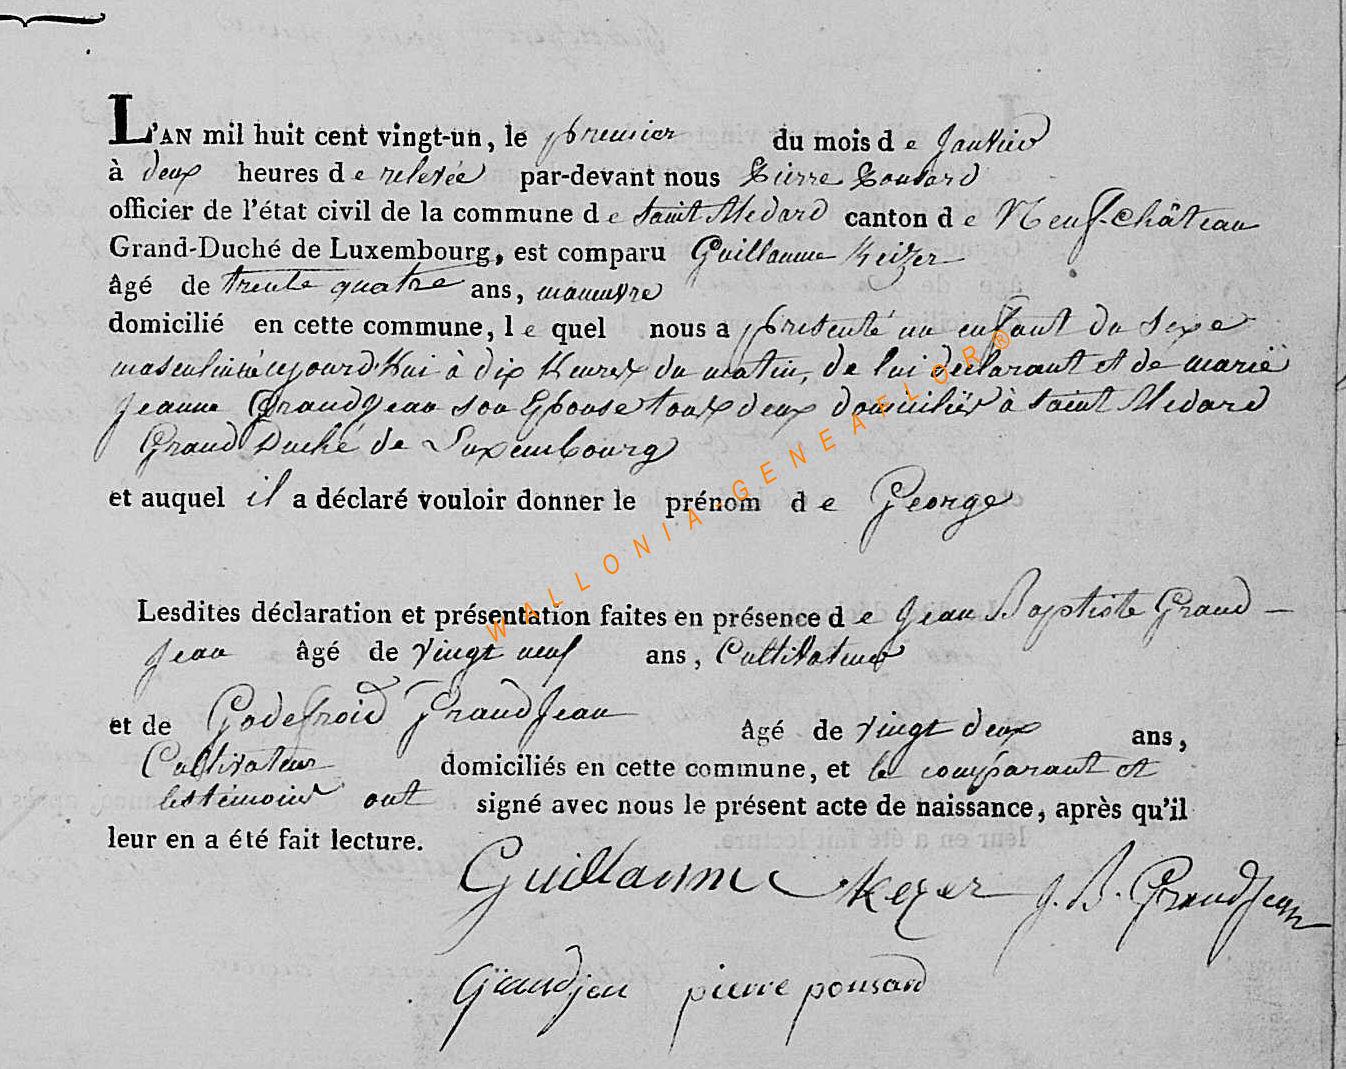 L'AN mil huit cent vingt-un, le premier du mois de Janvier
à deux heures de relevée par-devant nous Pierre Ponsard
officier de l'état civil de la commune de Saint Medard canton de Neuf-château
Grand-Duché de Luxembourg, est comparu Guillaume Keizer
âgé de trente quatre ans, manuvre
domicilié en cette commune, le quel nous a presenté un enfant du sexe
masculin né aujourd'hui à dix heures du matin, de lui déclarant et de marie
Jeanne GrandJean son Epouse tous deux domiciliés à Saint Medard
Grand Duché de Luxembourg
et auquel il a déclaré vouloir donner le prénom de George
Lesdites déclaration et présentation faites en présence de Jean Baptiste Grand-
Jean âgé de vingt neuf ans, Cultivateur
et de Godefroid GrandJean âgé de vingt deux ans,
Cultivateur domiciliés en cette commune, et le comparant et
les témoins ont signé avec nous le présent acte de naissance, après qu'il
leur en a été fait lecture.
Guillaume Kezer J. B. GrandJean
Grandjean pierre ponsard
WALLONIA-GENEAFLOR®